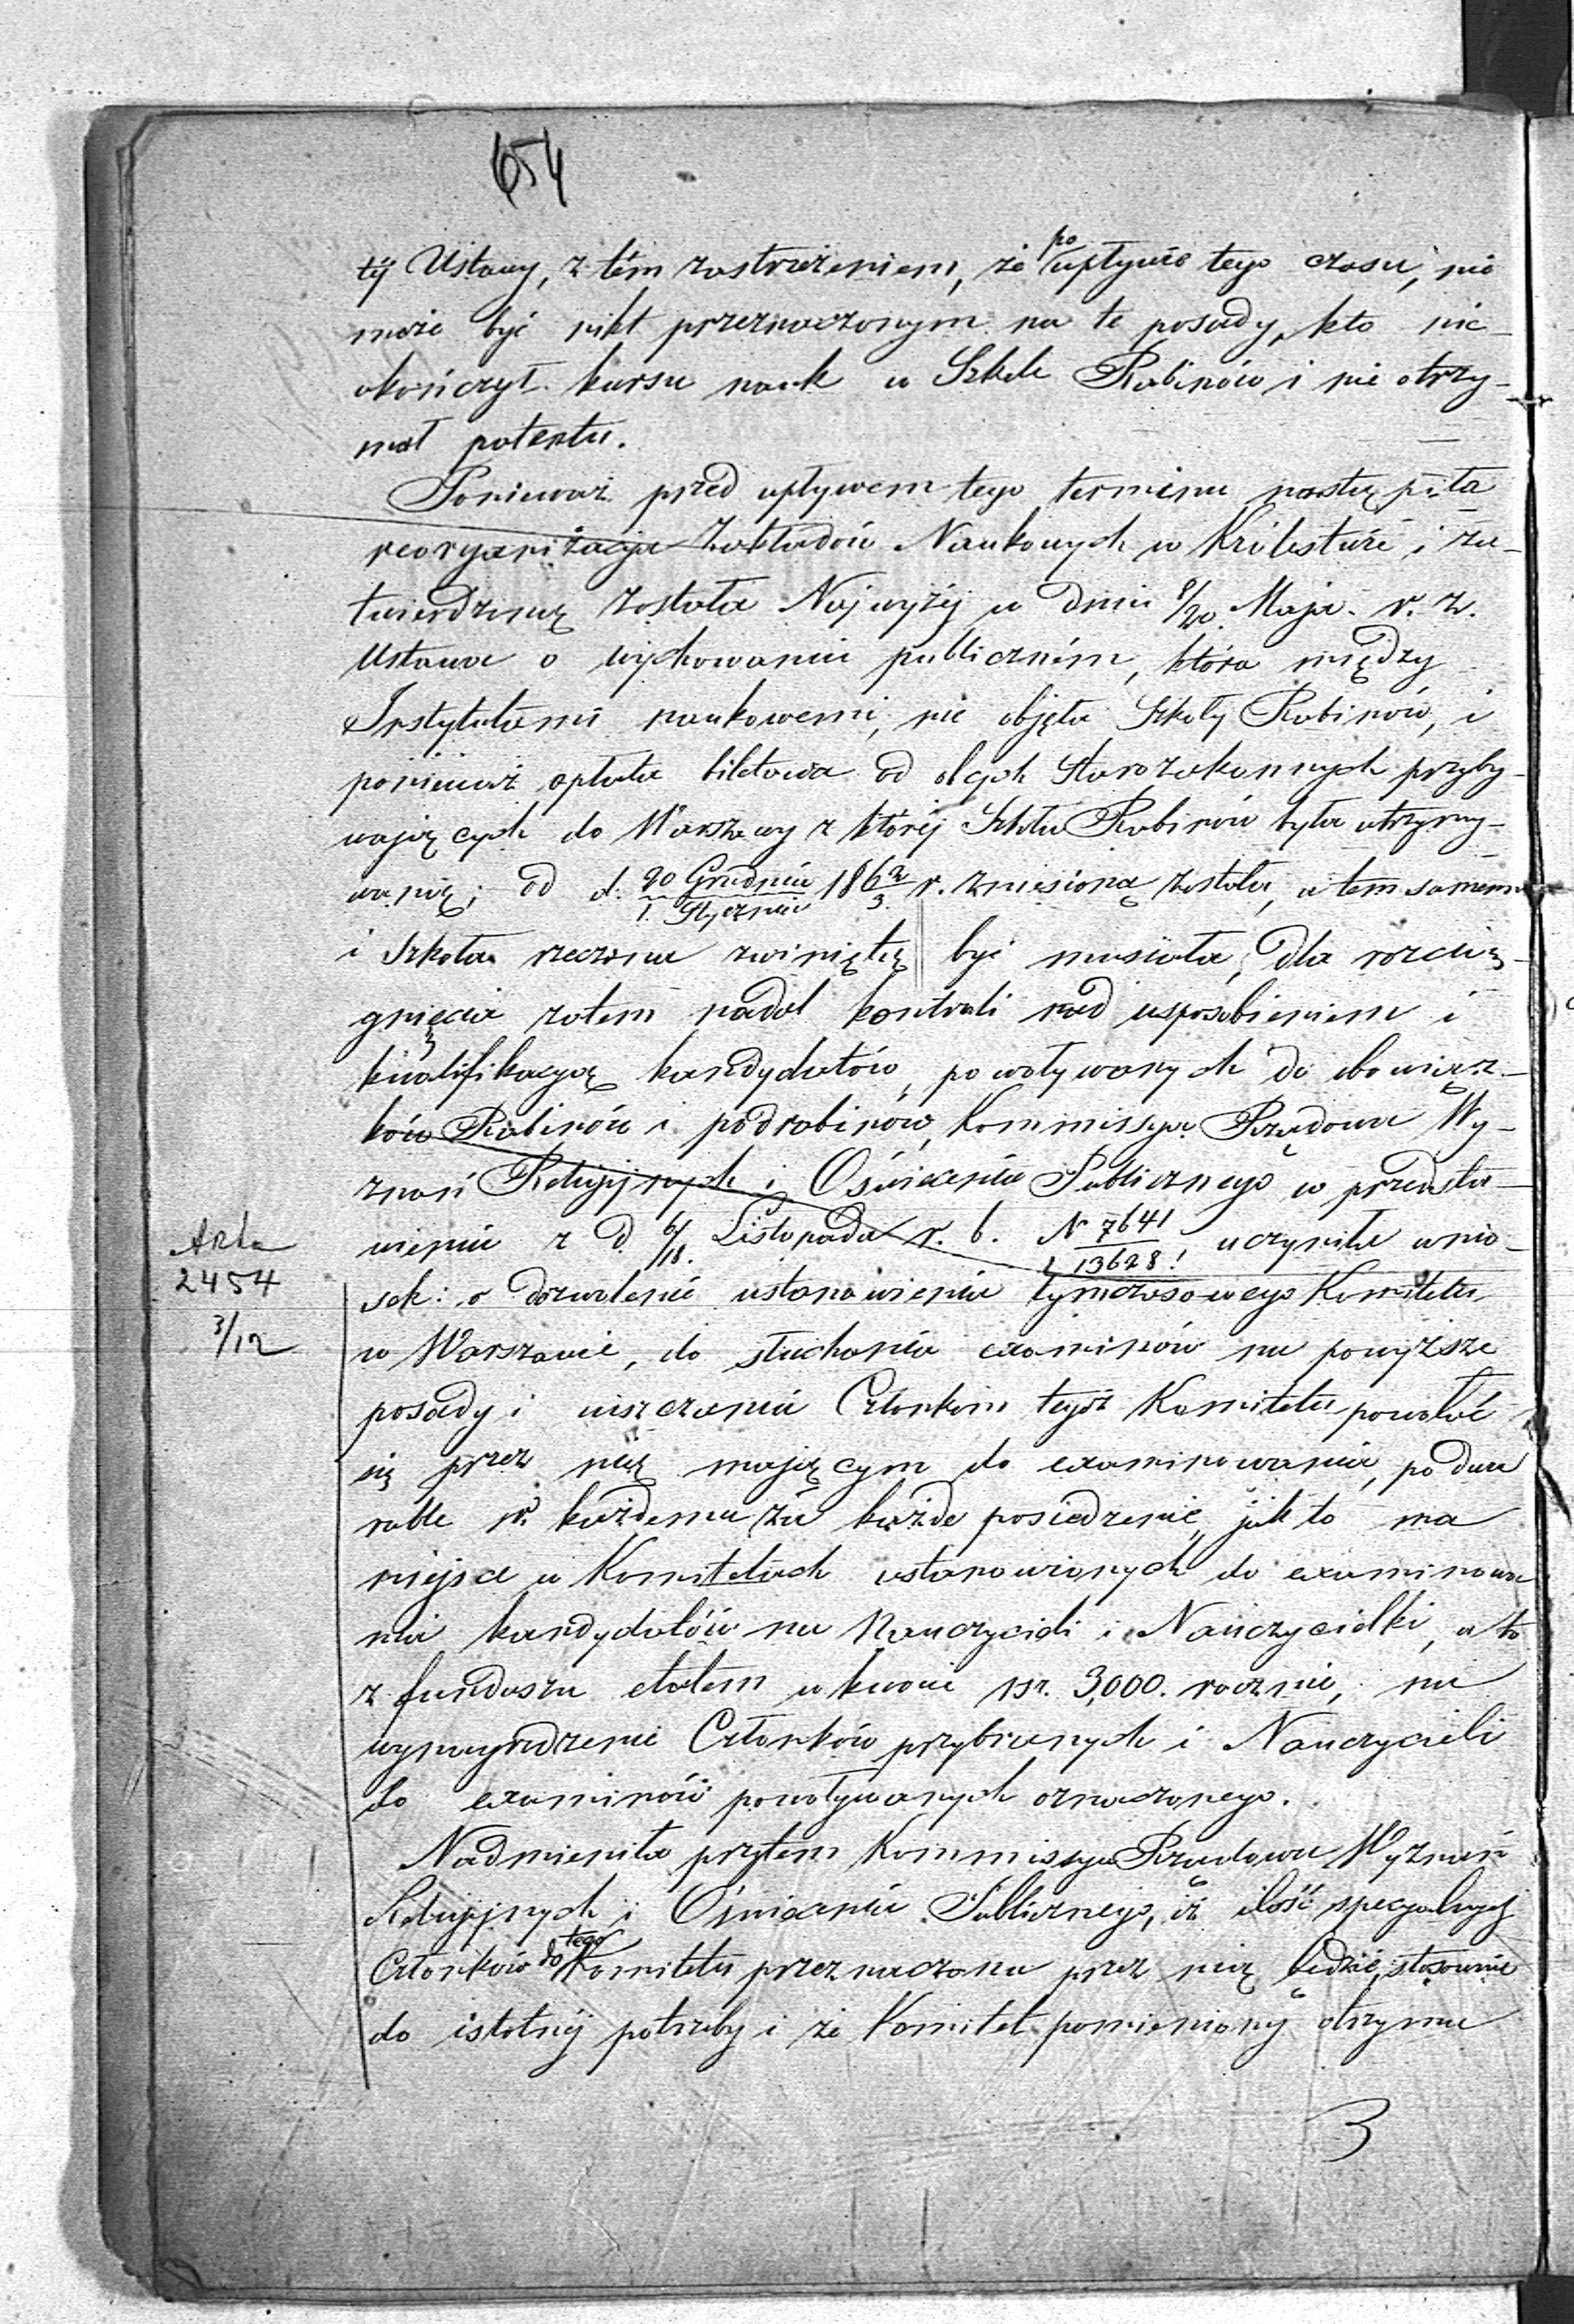 654
téj Ustawy, z tém zastrzeżeniem, że po upływie tego czasu, nie
może być nikt przeznaczonym na te posady, kto nie
ukończył kursu nauk w Szkole Rabinów i nie otrzy-
mał patentu.
Ponieważ przed upływem tego terminu nastąpiła
reorganizacja Zakładów Naukowych w Królestwie, i za-
twierdzoną została Najwyżéj w dniu 8/20 Maja r. z.
Ustawa o wychowaniu publiczném, która między
Instytutami naukowemi, nie objęła Szkoły Rabinów, i
ponieważ opłata biletowa od obcych Starozakonnych przyby-
wających do Warszawy z któréj Szkoła Rabinów była utrzymy-
waną, od d. 20 Grudnia/1 Stycznia 1862/3 r. zniesioną została, a tem samem
i Szkoła rzeczona zwiniętą być musiała, dla rozcią-
gnięcia zatem nadal kontroli nad usposobieniem i
kwalifikacyą kandydatów, powoływanych do obowiąz-
ków Rabinów i podrabinów, Kommissya Rządowa Wy-
znań Religijnych i Oświecenia Publicznego w przedsta-
wieniu z d. 6/18 Listopada r. b. N 7641/13628 uczyniła wnio-
Arta
2454
3/12
sek: o dozwolenie ustanowienia tymczasowego Komitetu
w Warszawie, do słuchania examinów na powyższe
posady i uiszczania Członkom tegoż Komitetu powołać
się przez nią mającym do examinowania, po dwa
ruble sr. każdemu za każde posiedzenie, jak to ma
miejsce w Komitetach ustanowionych do examinowa
nia kandydatów na Nauczycieli i Nauczycielki, a to
z funduszu etatem w kwocie rsr. 3,000. rocznie, na
wynagrodzenie Członków przybranych i Nauczycieli
do examinów powoływanych oznaczonego.
Nadmieniła przytem Kommissya Rządowa Wyznań
Religijnych i Oświecenia Publicznego, iż ilość specyalnych
Członków do tego Komitetu przeznaczona przez nią będzie, stosownie
do istotnéj potrzeby i że Komitet pomieniony otrzyma
3